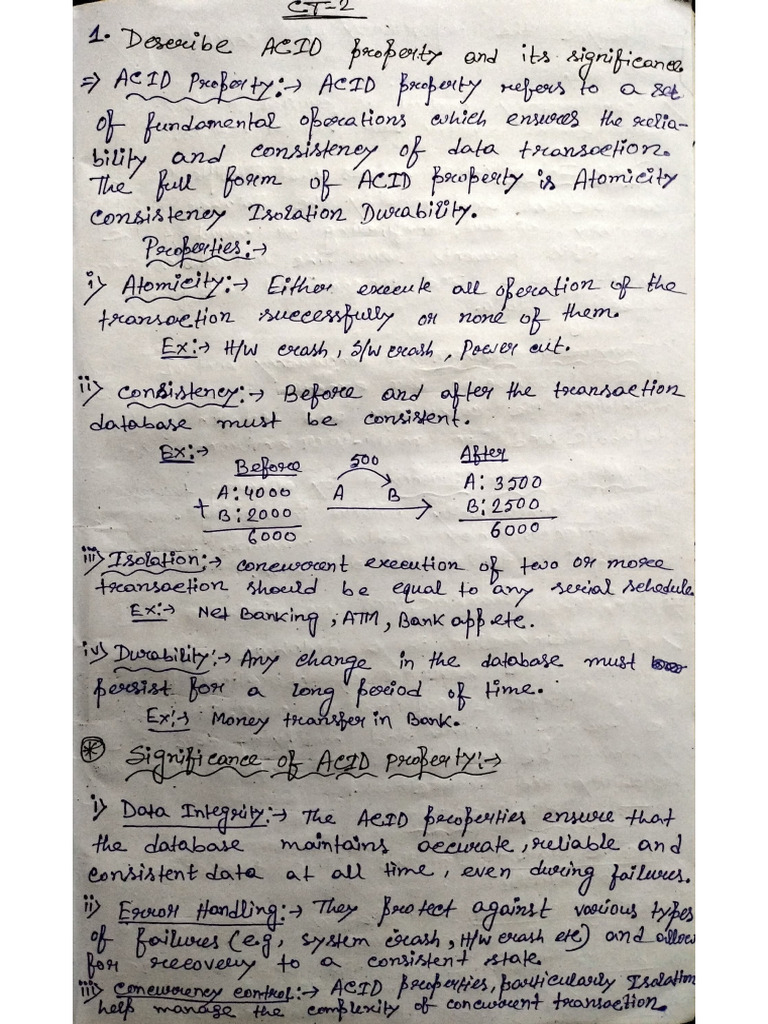 CT-2
1. Describe ACID property and its significance
⇒ ACID Property:→ ACID property refers to a set
of fundamental operations which ensures the relia-
bility and consistency of data transaction.
The full form of ACID property is Atomicity
Consistency Isolation Durability.
Properties:→
i) Atomicity:→ Either execute all operation of the
transaction successfully or none of them.
Ex:→ H/W crash, S/W crash, Power cut.
ii) Consistency:→ Before and after the transaction
database must be consistent.
Ex:→
Before 500 After
A: 4000 A B A: 3500
+ B: 2000 → B: 2500
6000 6000
iii) Isolation:→ concurrent execution of two or more
transaction should be equal to any serial schedule.
Ex:→ Net Banking, ATM, Bank app etc.
iv) Durability:→ Any change in the database must
persist for a long period of time.
Ex:→ Money transfer in Bank.
* Significance of ACID property:→
i) Data Integrity:→ The ACID properties ensure that
the database maintains accurate, reliable and
consistent data at all time, even during failures.
ii) Error Handling:→ They protect against various types
of failures (e.g, system crash, H/W crash etc) and allow
for recovery to a consistent state.
iii) Concurrency control:→ ACID properties, particularly Isolation
help manage the complexity of concurrent transaction.